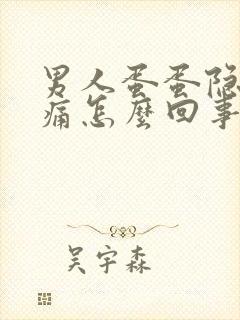 男人蛋蛋隐
痛怎麼回事
吴宇森